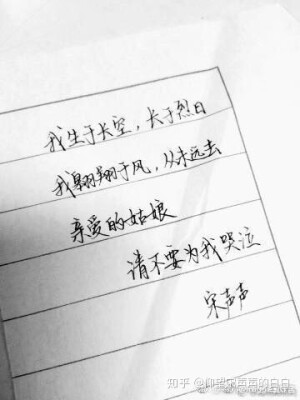 我生于长空，长于烈日
我翱翔于风，从未远去
亲爱的姑娘
请不要为我哭泣
宋声声
知乎 @仰望宋声声的白白